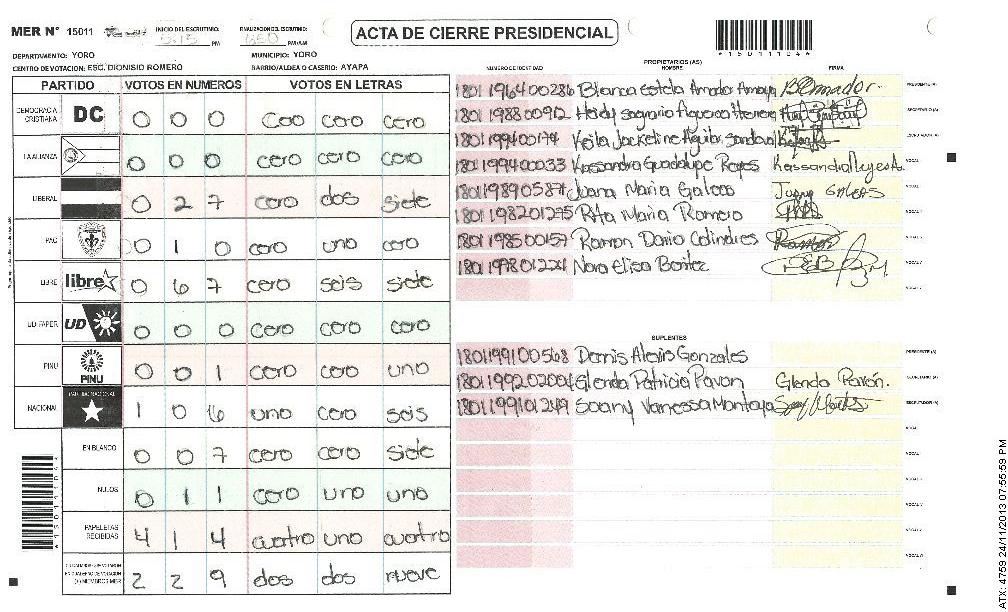 MER Nº 15011
INICIO DEL ESCRUTINIO: 5:15 PM
FINALIZACION ESCRUTINIO: PM/AM
ACTA DE CIERRE PRESIDENCIAL
DEPARTAMENTO: YORO
MUNICIPIO: YORO
CENTRO DE VOTACION: ESC. DIONISIO ROMERO
BARRIO/ALDEA O CASERIO: AYAPA
PARTIDO VOTOS EN NUMEROS VOTOS EN LETRAS
DEMOCRACIA CRISTIANA DC 0 0 0 cero cero cero
LA ALIANZA 0 0 0 cero cero cero
LIBERAL 0 2 7 cero dos siete
PAC 0 1 0 cero uno cero
LIBRE libre 0 6 7 cero seis siete
UD FAPER UD 0 0 0 cero cero cero
PINU PINU 0 0 1 cero cero uno
NACIONAL PARTIDO NACIONAL 1 0 6 uno cero seis
EN BLANCO 0 0 7 cero cero siete
NULOS 0 1 1 cero uno uno
PAPELETAS RECIBIDAS 4 1 4 cuatro uno cuatro
2 2 9 dos dos nueve
PROPIETARIOS (AS)
NUMERO DE IDENTIDAD NOMBRE FIRMA
1801 1964 00286 Blanca Estela Amador Amaya BAmador PRESIDENTE (A)
1801 1988 00912 Heidy Sagrario Figueroa Herrera SECRETARIO (A)
1801 1994 00174 Keila Jackeline Aguilar Sandoval ESCRUTADOR (A)
1801 1994 00033 Kassandra Guadalupe Reyes Kassandra Reyes A. VOCAL
1801 1989 0587 Juana Maria Galeas Juana Galeas VOCAL
1801 1982 01275 Rita Maria Romero VOCAL
1801 1985 00157 Ramon Dario Colindres Ramon VOCAL
1801 1978 01221 Nora Elisa Benitez VOCAL
VOCAL
SUPLENTES
1801 1991 00568 Dennis Alexis Gonzales PRESIDENTE (A)
1801 1992 02001 Glenda Patricia Pavon Glenda Pavón. SECRETARIO (A)
1801 1991 01249 Soany Vanessa Montoya ESCRUTADOR (A)
VOCAL
VOCAL
VOCAL
VOCAL
VOCAL
VOCAL
ATX: 4759 24/11/2013 07:55:59 PM